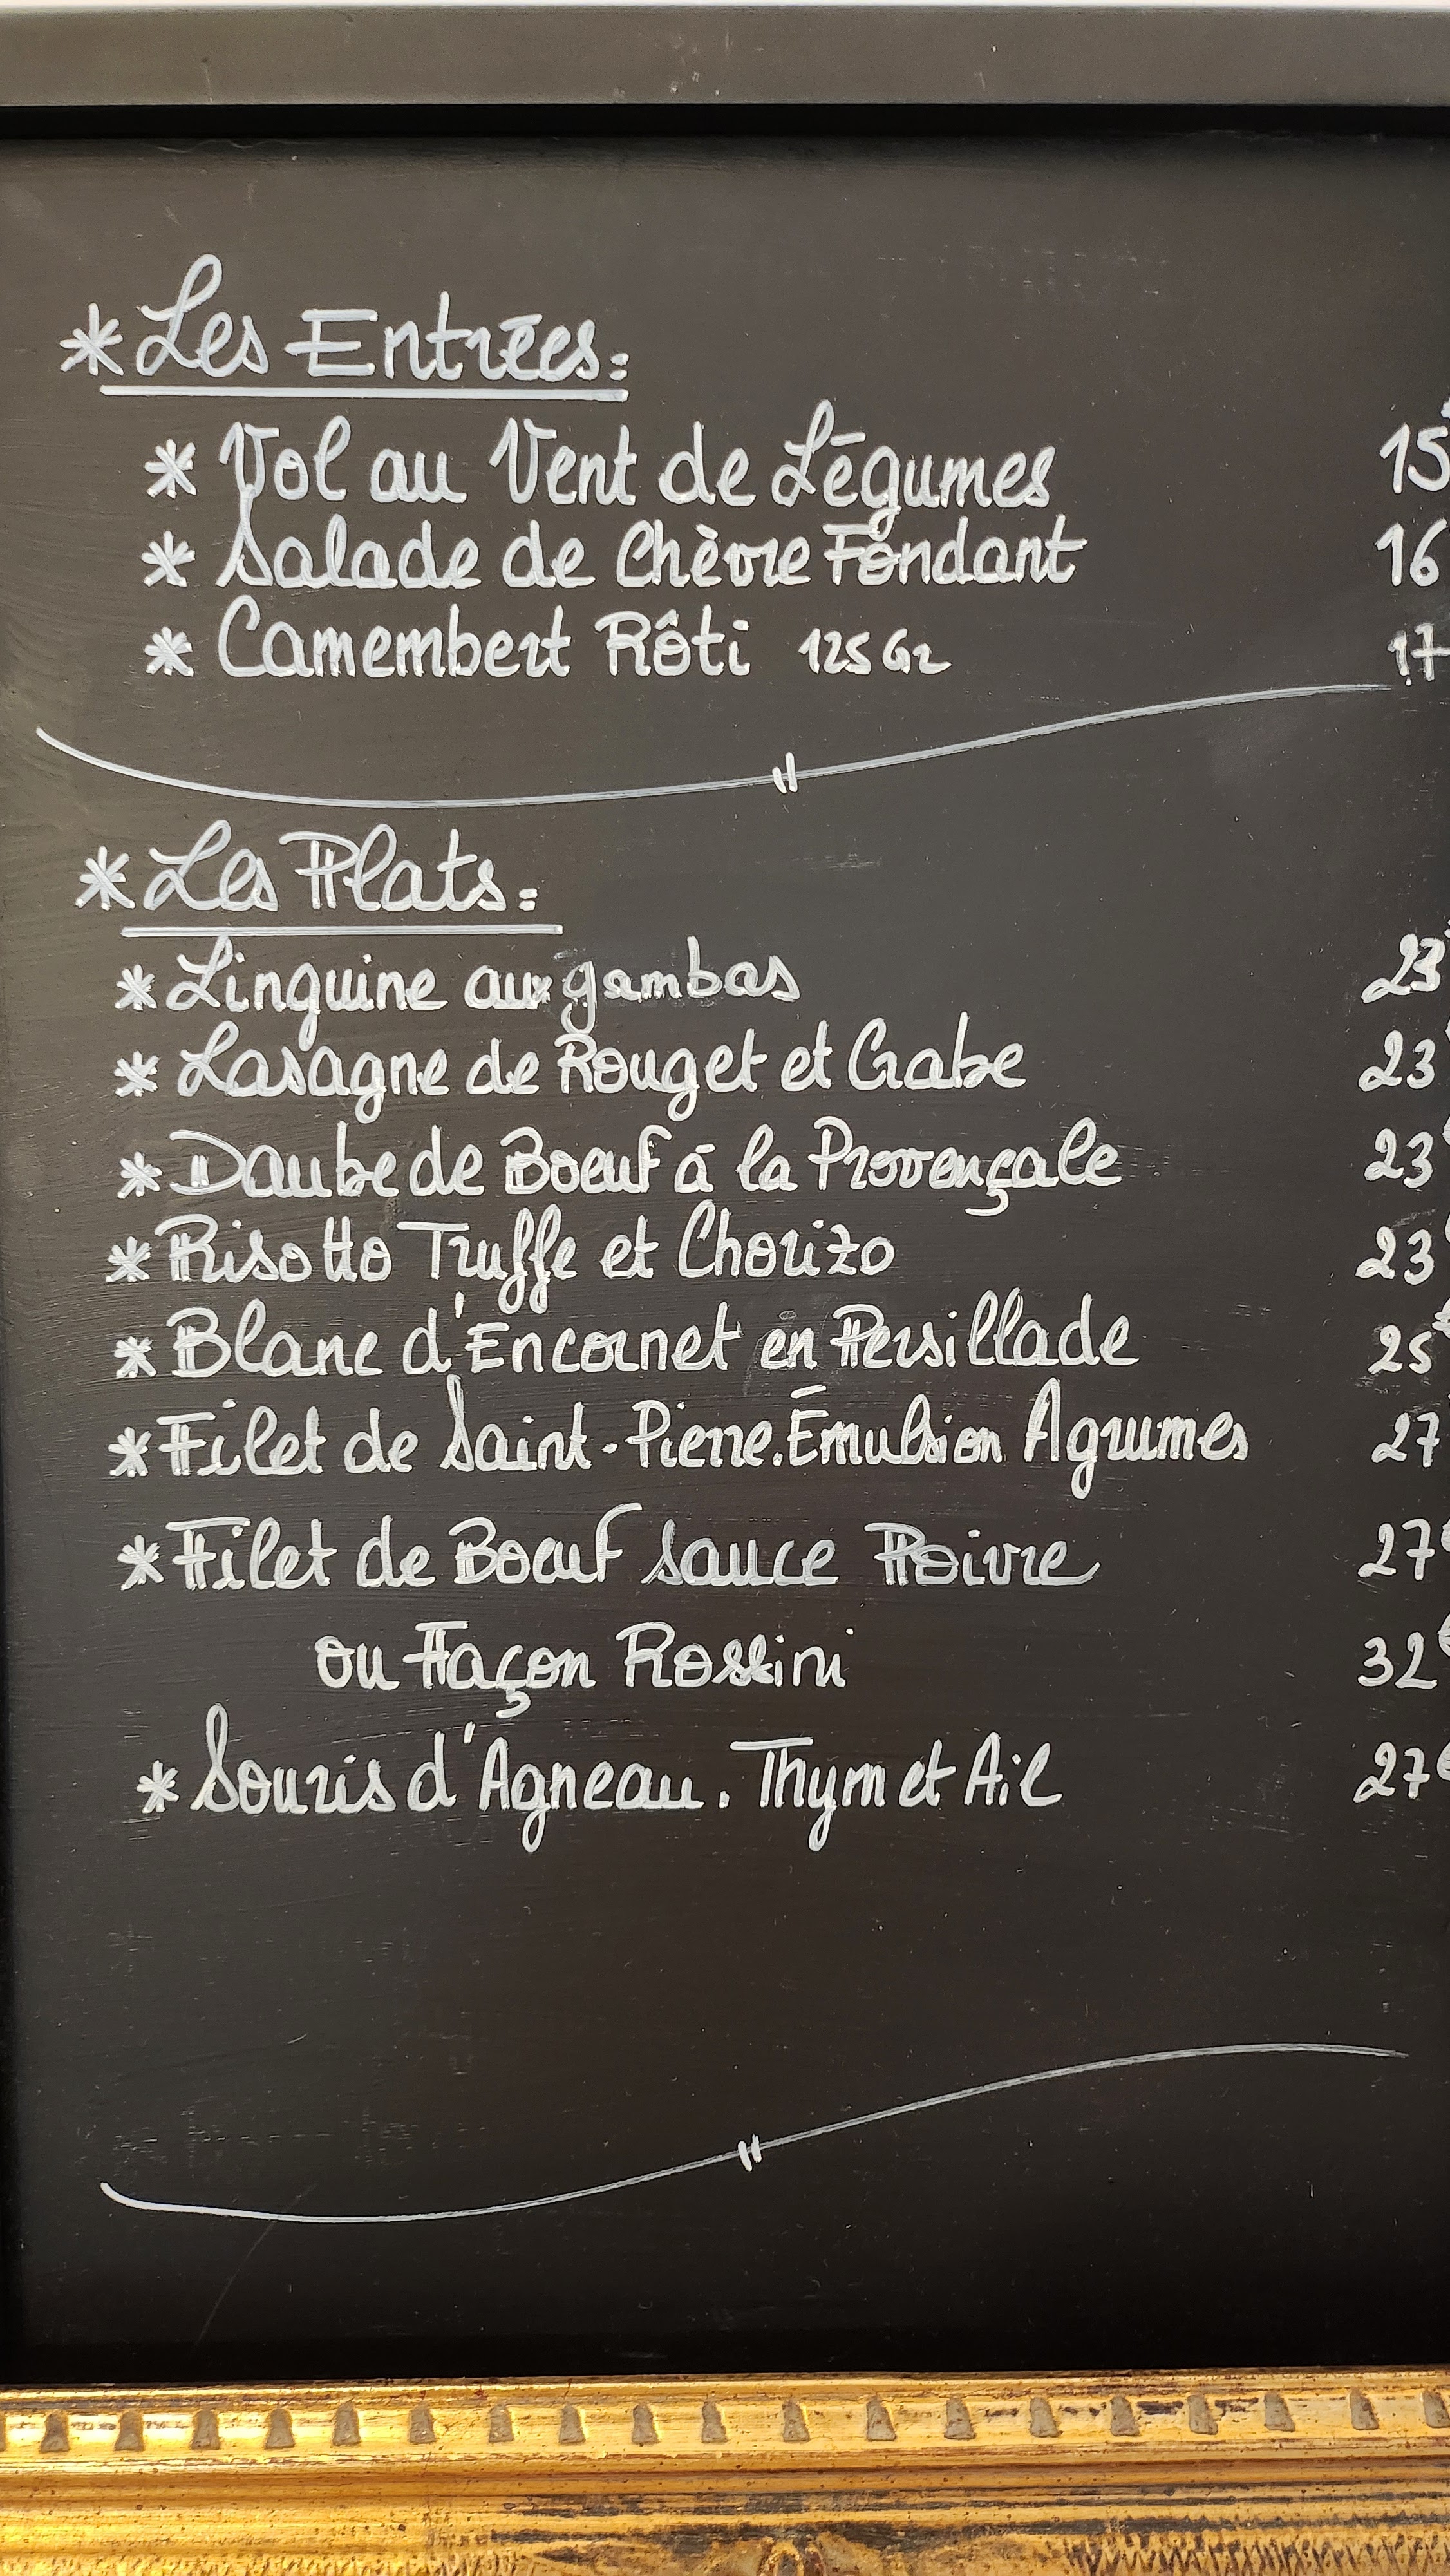 * Les Entrées:
* Vol au Vent de Légumes 15
* Salade de Chèvre Fondant 16
* Camembert Rôti 125Gr 17
* Les Plats:
* Linguine aux gambas 23
* Lasagne de Rouget et Crabe 23
* Daube de Boeuf à la Provençale 23
* Risotto Truffe et Chorizo 23
* Blanc d'Encornet en Persillade 25
* Filet de Saint-Pierre. Émulsion Agrumes 27
* Filet de Boeuf sauce Poivre 27€
ou Façon Rossini 32€
* Souris d'Agneau. Thym et Ail 27€